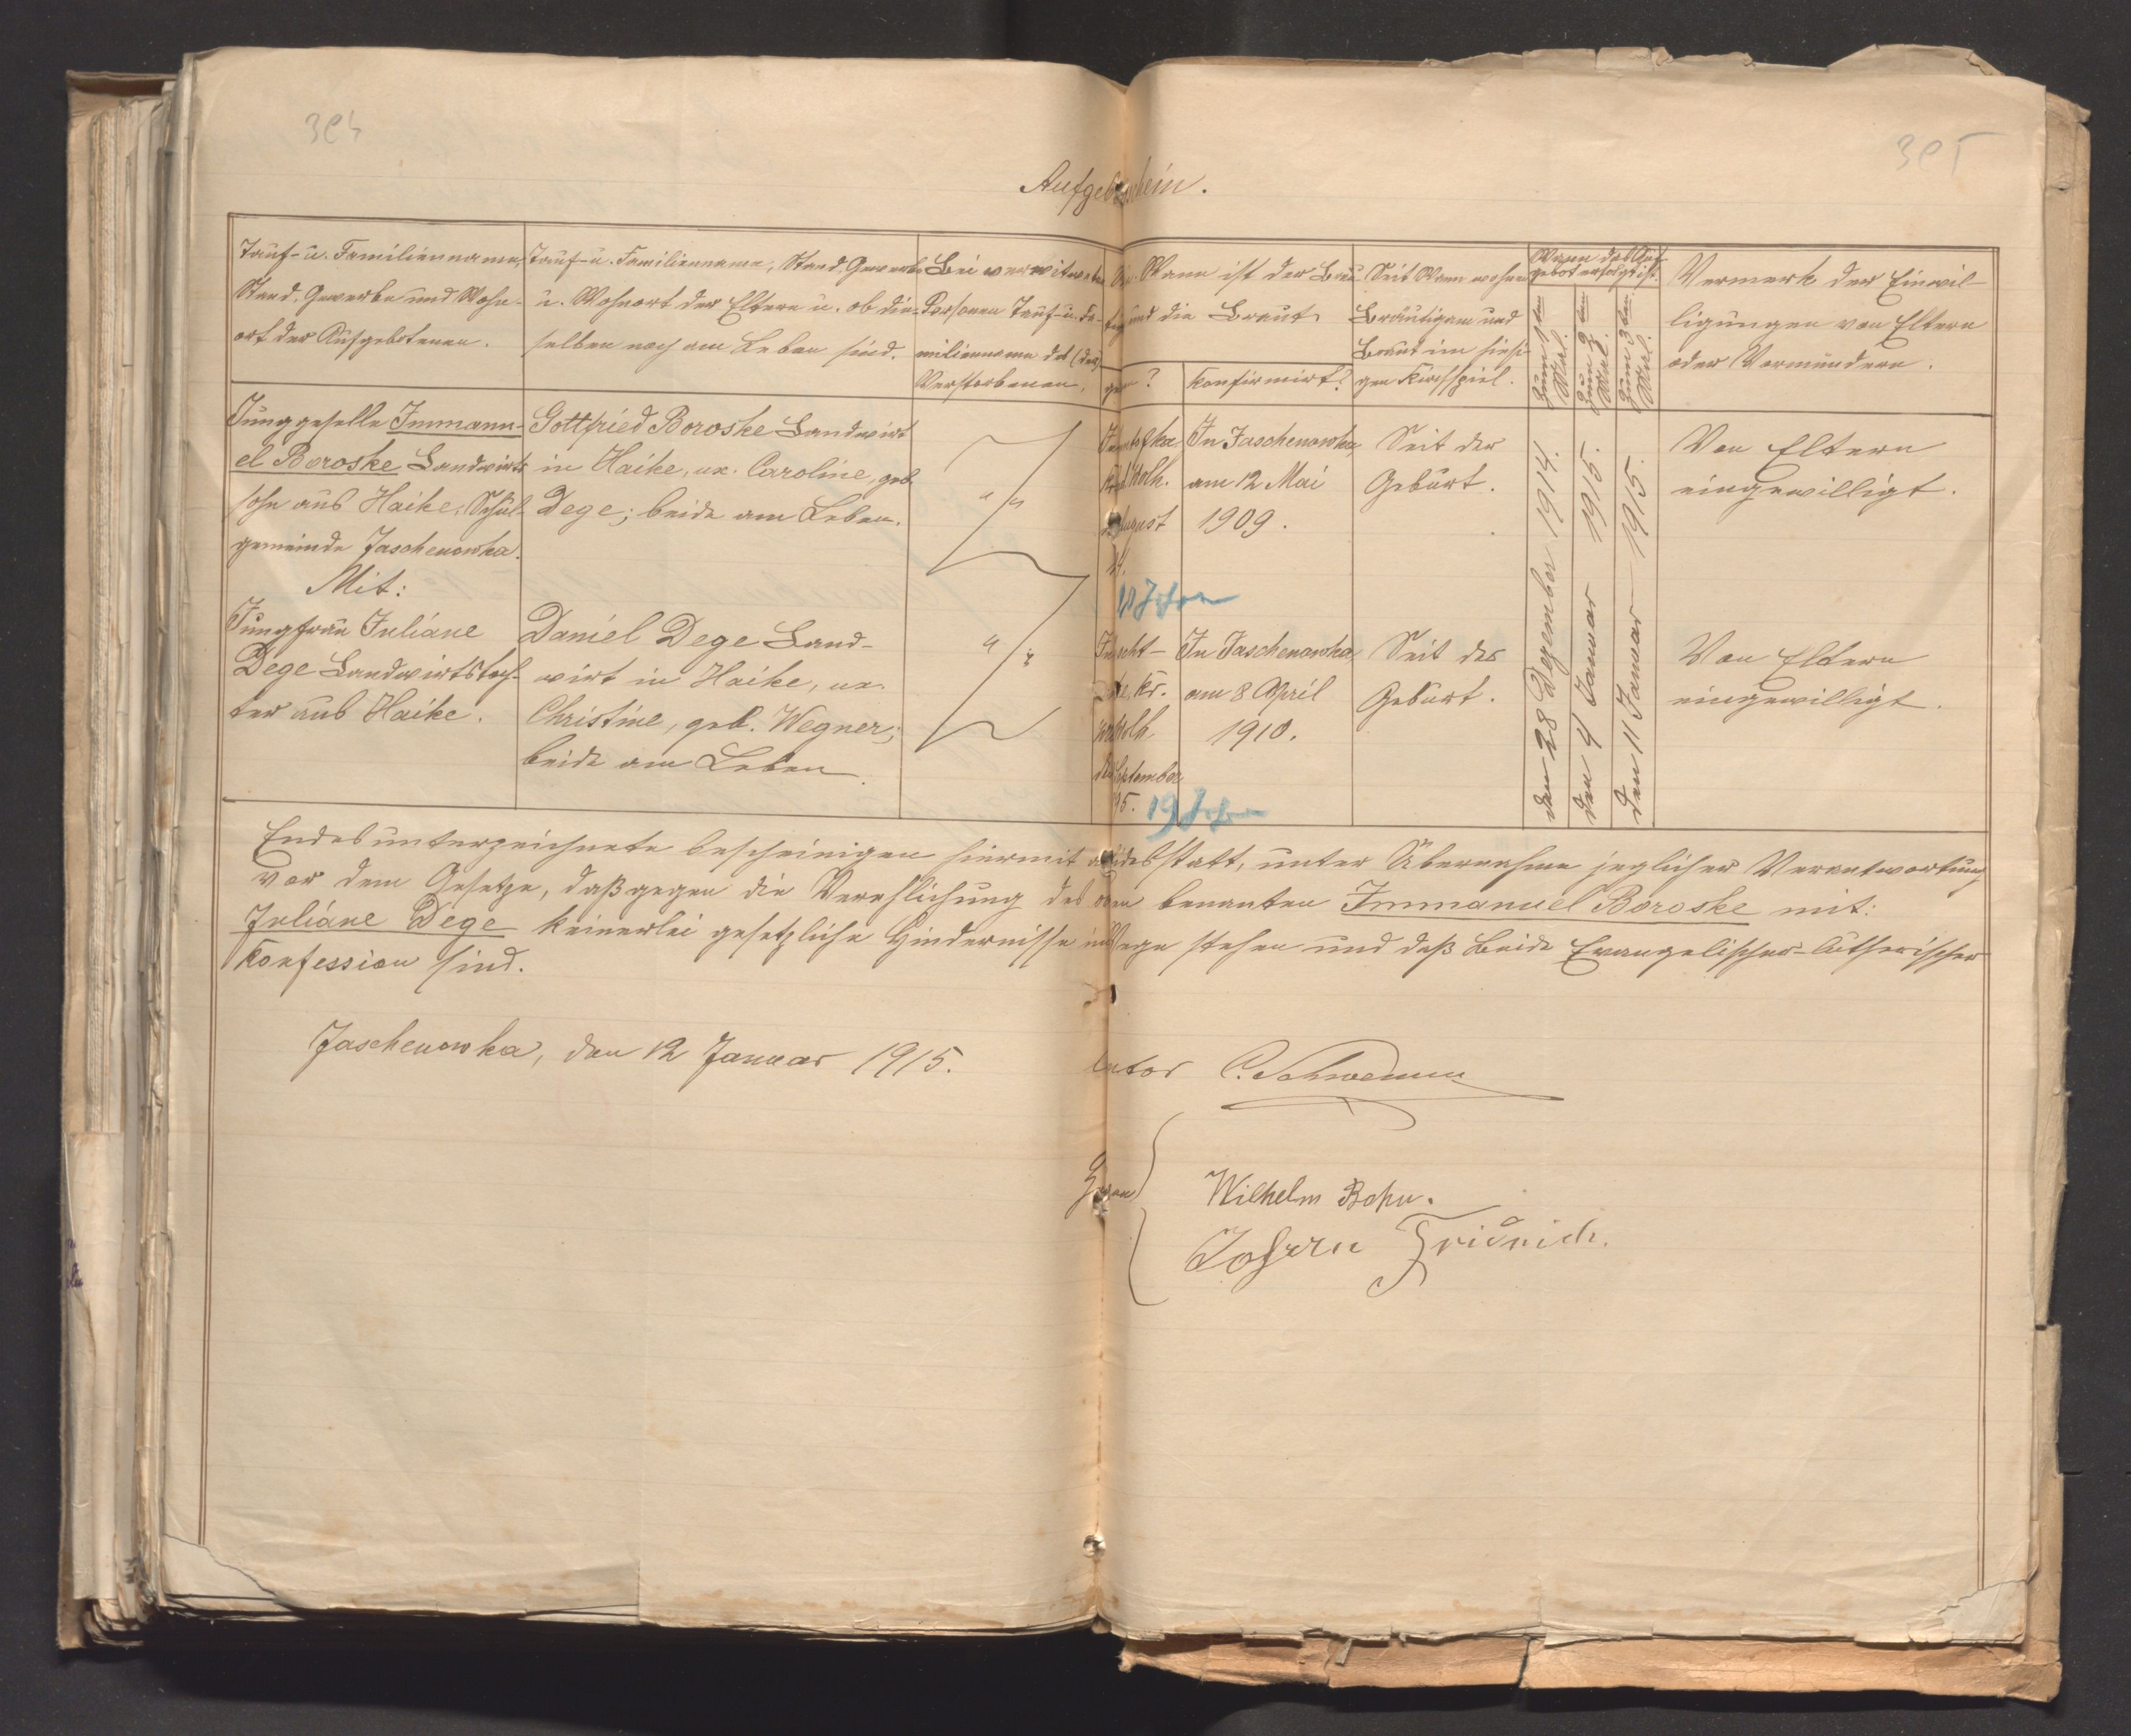 394
395
Aufgebotschein.
Tauf- u. Familienname,
Stand, Gewerbe und Wohn-
ort der Aufgebotenen.
Tauf- u. Familienname, Stand, Gewerbe
u. Wohnort der Eltern u. ob die-
selben noch am Leben sind.
Bei verwitweten
Personen Tauf- u. Fa-
milienname des (der)
Verstorbenen.
Wann ist der Bräu-
und die Braut
konfirmirt?
Seit Wann wohnen
Bräutigam und
Braut im hiesi-
gen Kirchspiel.
Wann das Auf-
gebot erfolgt ist.
Zum 1ten Mal.
Zum 2ten Mal.
Zum 3ten Mal.
Vermerk der Einwil-
ligungen von Eltern
oder Vormündern.
Junggeselle Immanu-
el Boroske Landwirts-
sohn aus Haike, Schul-
gemeinde Jaschenowka.
Mit:
Jungfrau Juliane
Dege Landwirtstoch-
ter aus Haike.
Gottfried Boroske Landwirt
in Haike, ux. Caroline, geb.
Dege; beide am Leben.
Daniel Dege Land-
wirt in Haike, ux.
Christine, geb. Wegner;
beide am Leben.
August
In Jaschenowka
am 12 Mai
1909.
Seit der
Geburt.
Von Eltern
eingewilligt.
Jahre
September
95.
19 Jahre
In Jaschenowka
am 8 April
1910.
Seit der
Geburt.
den 28 Dezember 1914.
den 4 Januar 1915.
den 11 Januar 1915.
Von Eltern
eingewilligt.
Endesunterzeichnete bescheinigen hiermit an Eidesstatt, unter Übernahme jeglicher Verantwortung
vor dem Gesetze, daß gegen die Verehlichung des oben benanten Immanuel Boroske mit:
Juliane Dege keinerlei gesetzliche Hindernisse im Wege stehen und daß Beide Evangelischer-lutherischer
Konfession sind.
Jaschenowka, den 12 Januar 1915.
Cantor
Zeugen
Wilhelm Bohn.
Johann Fridrich.